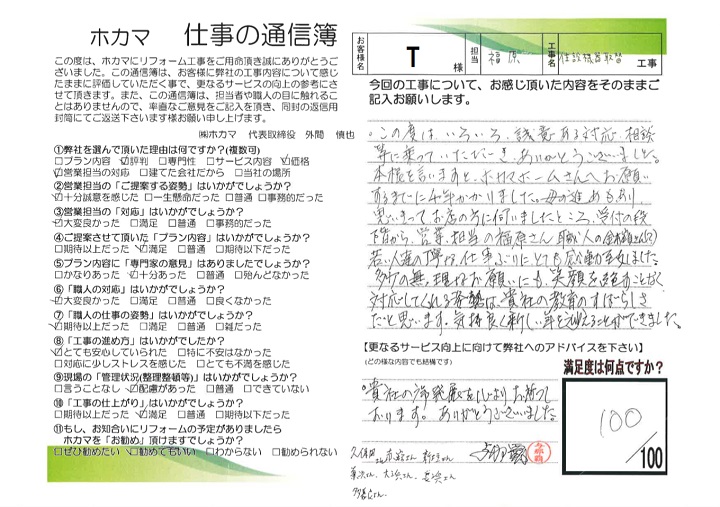 ホカマ 仕事の通信簿
この度は、ホカマにリフォーム工事をご用命頂き誠にありがとうご
ざいました。この通信簿は、お客様に弊社の工事内容について感じ
たままに評価していただく事で、更なるサービスの向上の参考にさ
せて頂きます。また、この通信簿は、担当者や職人の目に触れるこ
とはありませんので、率直なご意見をご記入を頂き、同封の返信用
封筒にてご返送下さいます様お願い申し上げます。
㈱ホカマ 代表取締役 外間 慎也
①弊社を選んで頂いた理由は何ですか?(複数可)
□プラン内容 ☑評判 □専門性 □サービス内容 ☑価格
☑営業担当の対応 □建てた会社だから □当社の場所
②営業担当の「ご提案する姿勢」はいかがでしょうか?
☑十分誠意を感じた □一生懸命だった □普通 □事務的だった
③営業担当の「対応」はいかがでしょうか?
☑大変良かった □満足 □普通 □事務的だった
④ご提案させて頂いた「プラン内容」はいかがでしょうか?
□期待以上だった ☑満足 □普通 □期待以下だった
⑤プラン内容に「専門家の意見」はありましたでしょうか?
□かなりあった ☑十分あった □普通 □殆んどなかった
⑥「職人の対応」はいかがでしょうか?
☑大変良かった □満足 □普通 □良くなかった
⑦「職人の仕事の姿勢」はいかがでしょうか?
☑期待以上だった □満足 □普通 □雑だった
⑧「工事の進め方」はいかがでしたか?
☑とても安心していられた □特に不安はなかった
□対応に少しストレスを感じた □とても不満を感じた
⑨現場の「管理状況(整理整頓等)」はいかがでしょうか?
□言うことなし ☑配慮があった □普通 □できていない
⑩「工事の仕上がり」はいかがでしょうか?
□期待以上だった ☑満足 □普通 □期待以下だった
⑪もし、お知合いにリフォームの予定がありましたら
ホカマを「お勧め」頂けますでしょうか?
□ぜひ勧めたい ☑勧めてもいい □わからない □勧められない
お客様名 T 様 担当 福原 工事名 住設機器取替 工事
今回の工事について、お感じ頂いた内容をそのままご
記入お願いします。
。この度は、いろいろ、誠意ある対応、相談
等に乗っていただき、ありがとうございました。
本様を言いますと、ホカマホームさんへお願い
するまでに4年かかりました。母の進めもあり、
思いきってお店の方に伺いましたところ、受付の段
階から、営業、担当の福原さん、職人の
若い人達の丁寧な仕事ぶりにとても感動致しました。
多少の無理なお願いにも、笑顔を絶すことなく
対応してくれる姿勢は、貴社の教育のすばらしさ
だと思います。気持良く新しい年を迎えることができました。
【更なるサービス向上に向けて弊社へのアドバイスを下さい】
(どの様な内容でも結構です)
。貴社の御発展を心よりお祈りして
おります。ありがとうございました。
満足度は何点ですか?
100
/100